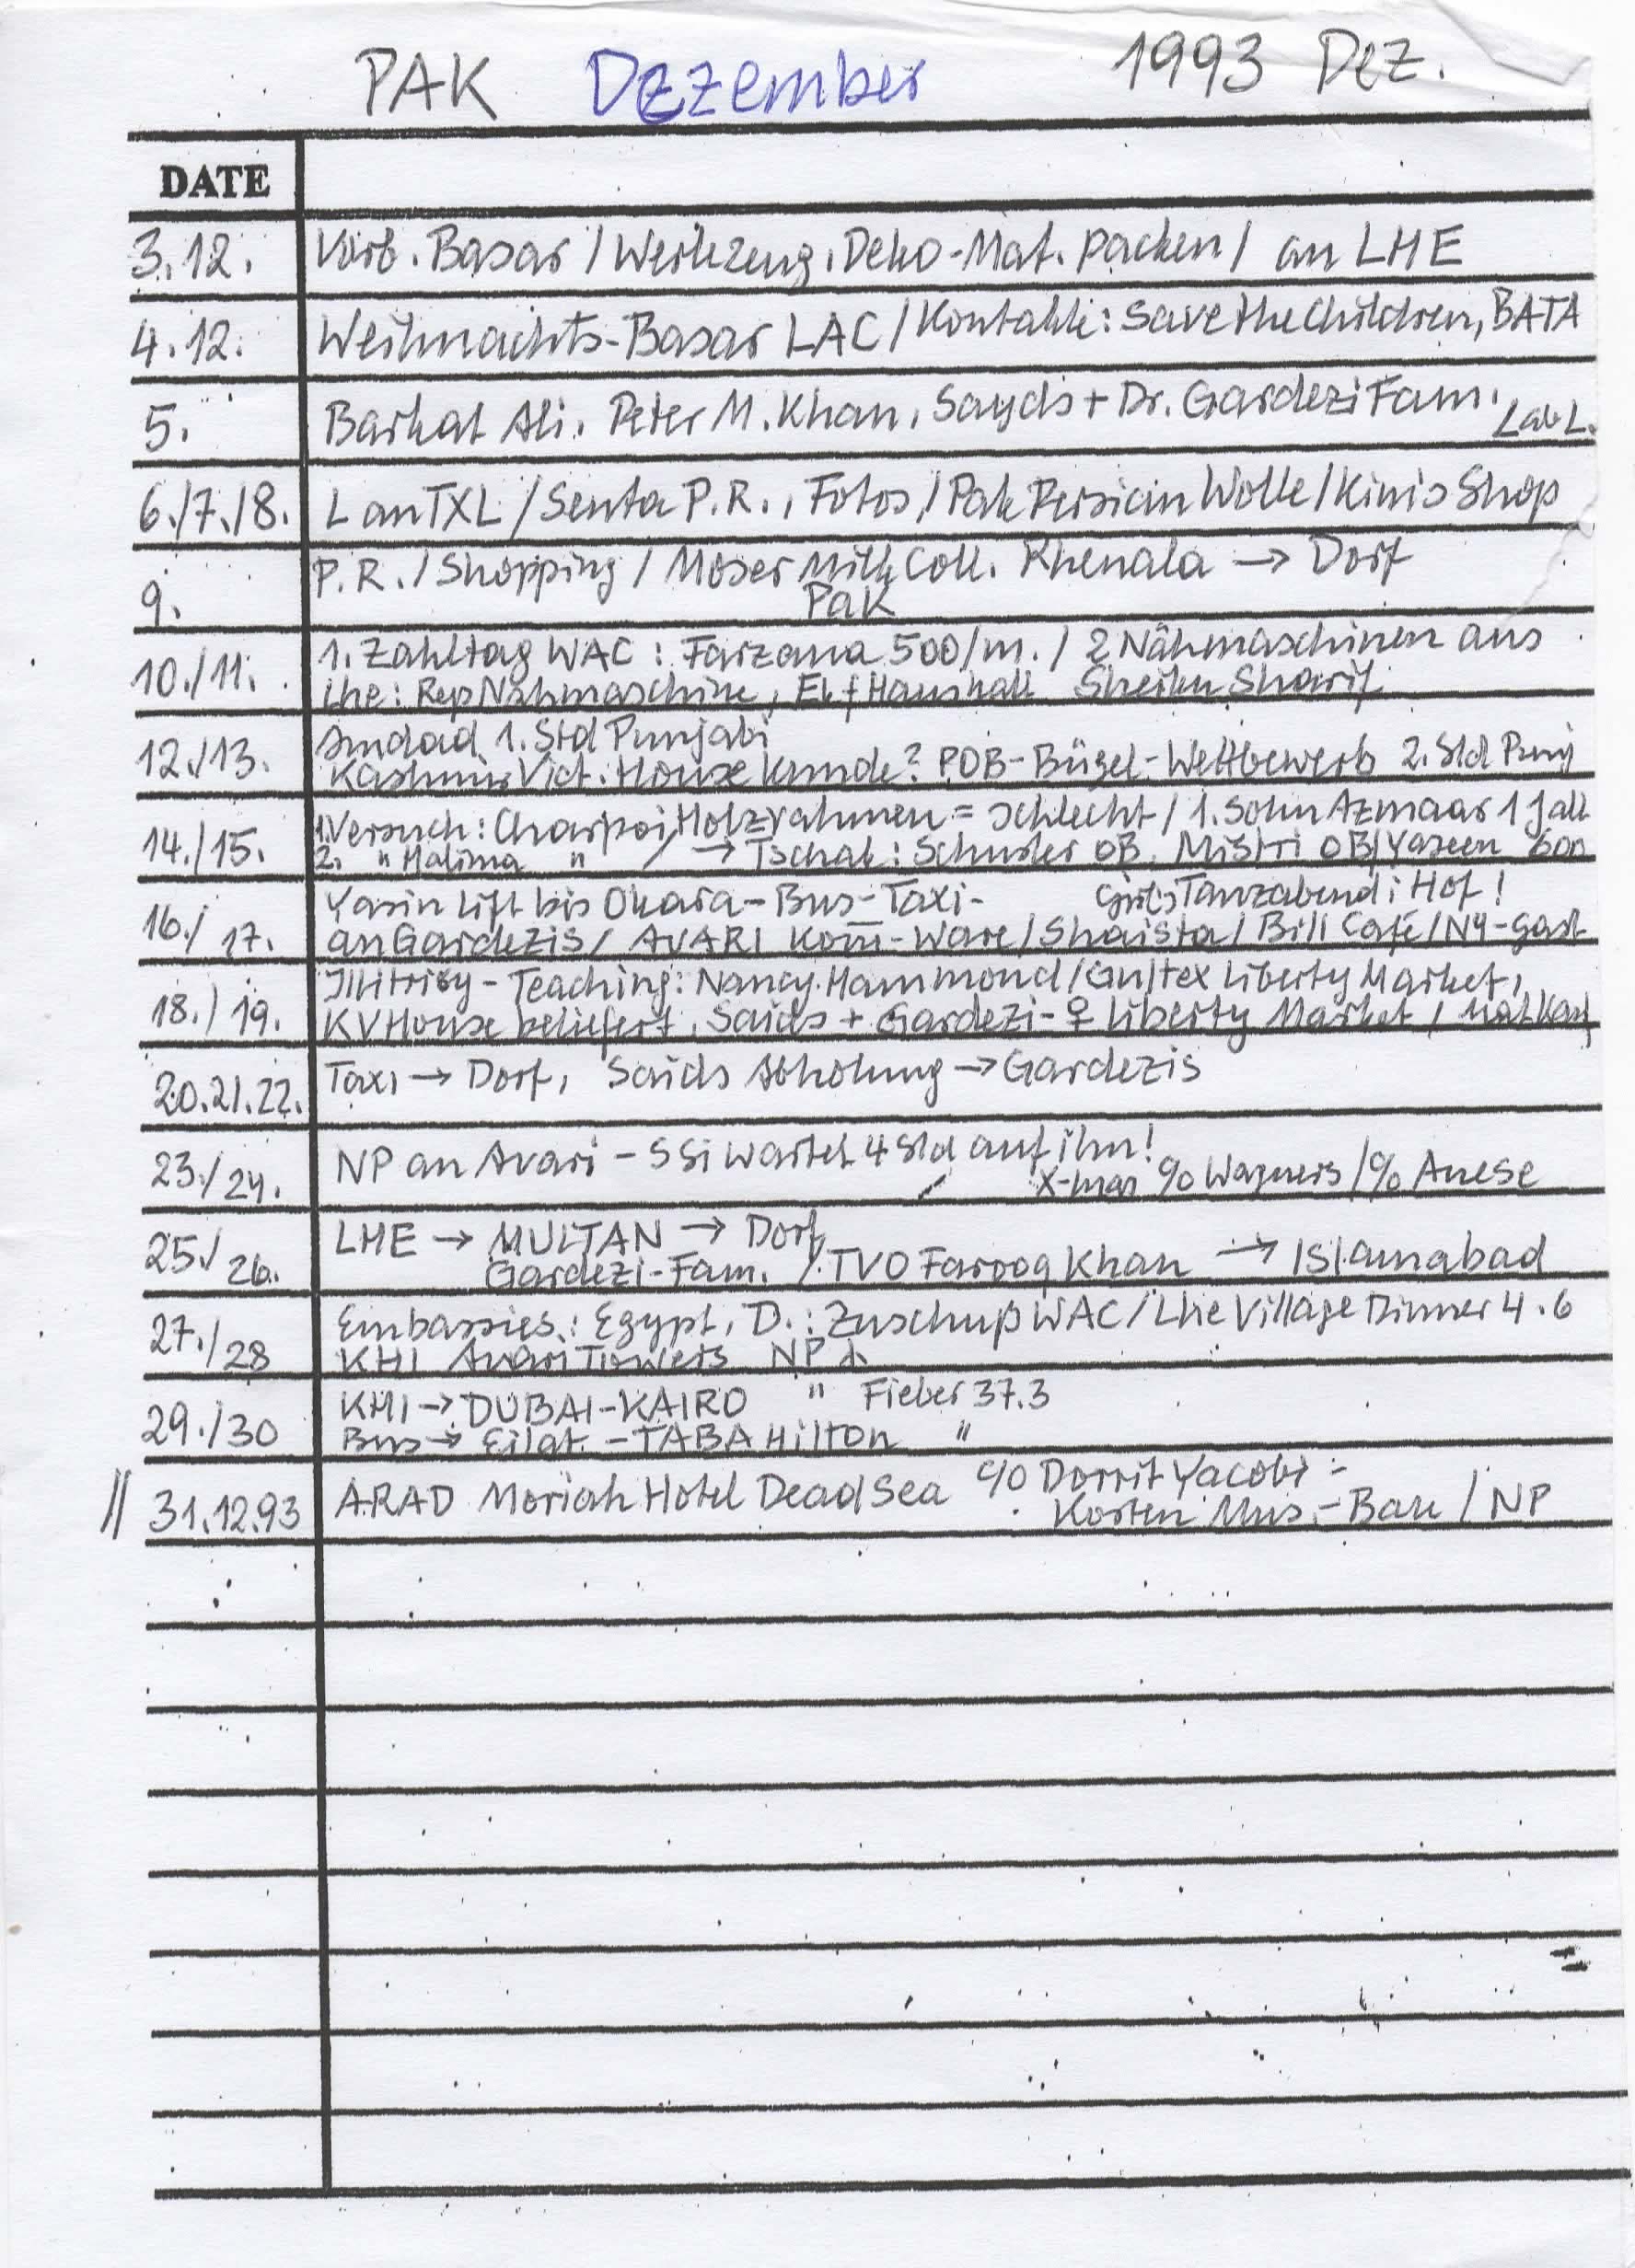 PAK Dezember 1993 Dez.
DATE
3.12. Vorb. Basar / Werkzeug, Deko-Mat. packen / an LHE
4.12. Weihnachts-Basar LAC / Kontakte: Save the Children, BATA
5. Barkat Ali, Peter M. Khan, Sayds + Dr. Gardezi Fam. L ab L.
6./7./8. L an TXL / Senta P.R., Fotos / Pak Persian Wolle / Kinis Shop
9. P.R. / Shopping / Moser Milk Coll. Rhenala → Dorf
Pak
10./11. 1. Zahltag WAC: Farzana 500/m. / 2 Nähmaschinen aus
Lhe: Rep Nähmaschine, Ek f Haushalt Sheikh Sharif
12./13. Amdad 1. Std Punjabi
Kashmir Vict. House Kunde? POB-Bügel-Wettbewerb 2. Std Punj
14./15. 1. Versuch: Charpoi, Holzrahmen = schlecht / 1. Sohn Azmaar 1 Jall
2. " Halima " / → Tschak: Schuster OB, Mistri OB / Yaseen 600
16./17. Yasin Lift bis Okara - Bus - Taxi - Girls Tanzabend i Hof!
an Gardezis / AVARI Kom-Ware / Shaista / Bill Café / NY-Gast
18./19. Illitrisy - Teaching: Nancy Hammond / Gultex Liberty Market,
KV House beliefert, Saids + Gardezi-♀ Liberty Market /
20.21.22. Taxi → Dorf, Saids Abholung → Gardezis
23./24. NP an Avari - SSi wartet 4 Std auf ihn!
X-mas c/o Wagners / c/o Anese
25./26. LHE → MULTAN → Dorf
Gardezi-Fam. / TVO Farooq Khan → Islamabad
27./28 Embassies: Egypt, D.: Zuschuß WAC / Lhe Village Dinner 4.6
KHI Avari Towers NP
29./30 KHI → DUBAI-KAIRO " Fieber 37.3
Bus → Eilat - TABA Hilton "
// 31.12.93 ARAD Moriah Hotel Dead Sea c/o Dorrit Yacobi -
Kosten Mus.-Bau / NP